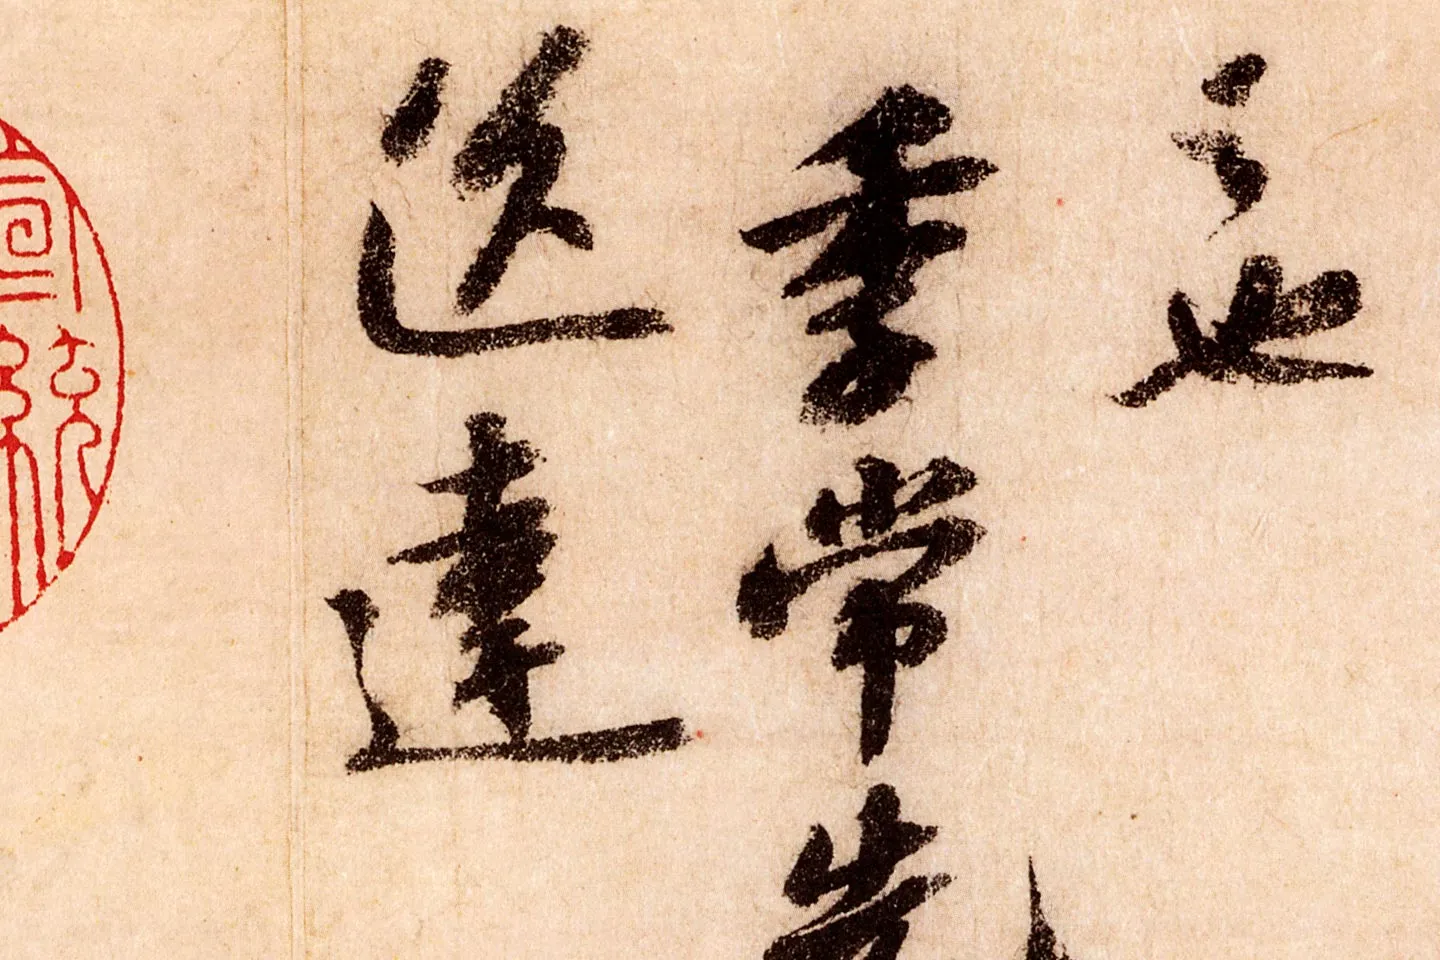 之也
季常先
送達